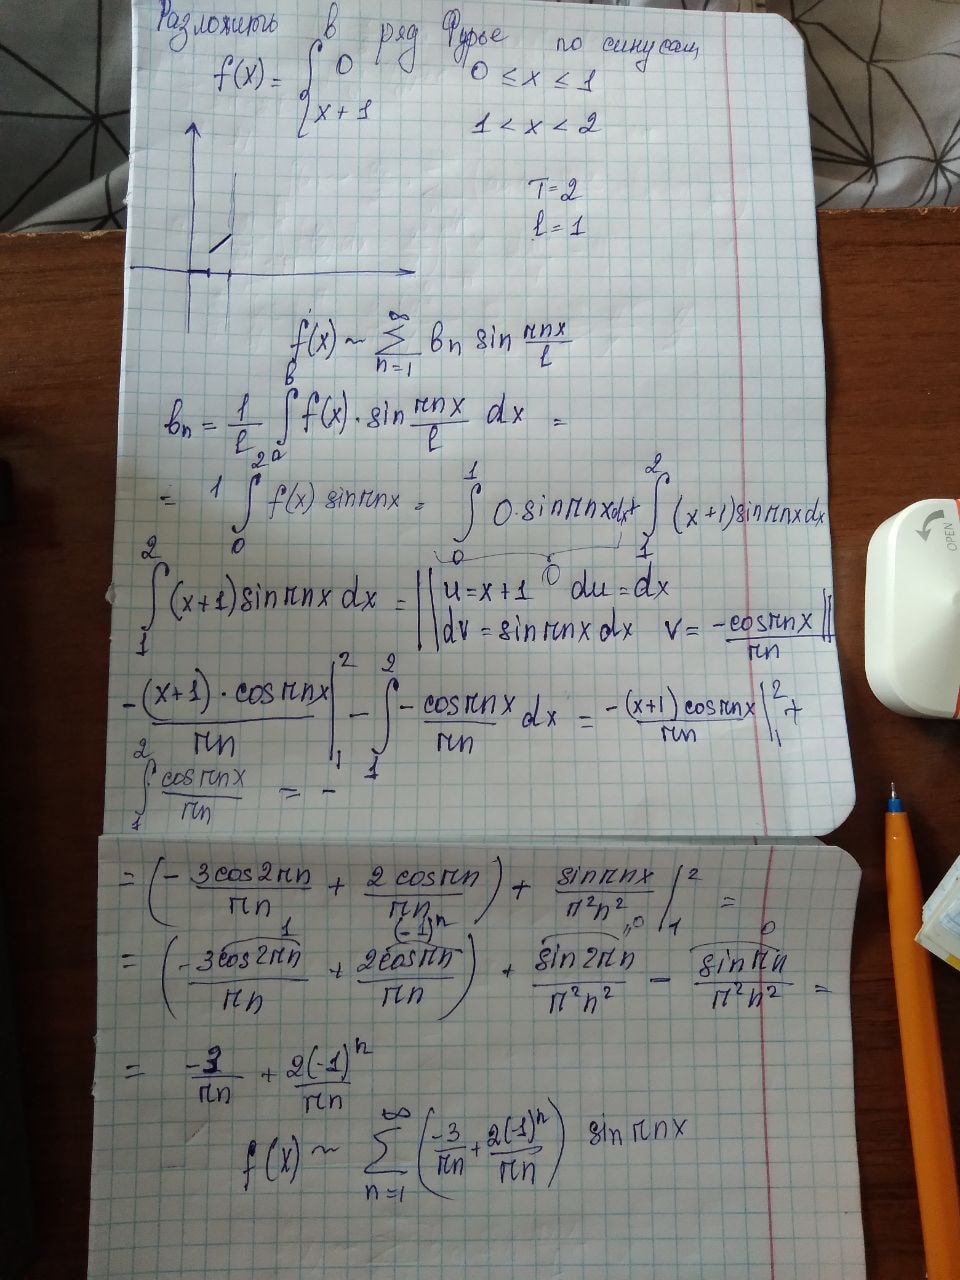 Разложить в ряд Фурье по синусам
f(x) = { 0 0 ≤ x ≤ 1
x + 1 1 < x < 2
T = 2
l = 1
f(x) ~ ∑_{n=1}^{∞} bn sin πnx/l
bn = 1/l ∫_a^b f(x) · sin πnx/l dx =
= 1 ∫_0^2 f(x) sin πnx = ∫_0^1 0 · sin πnx dx + ∫_1^2 (x+1) sin πnx dx
0
∫_1^2 (x+1) sin πnx dx = || u = x + 1 du = dx
dv = sin πnx dx v = -cos πnx/πn ||
-(x+1) · cos πnx/πn |_1^2 - ∫_1^2 - cos πnx/πn dx = -(x+1) cos πnx/πn |_1^2 +
∫_1^2 cos πnx/πn = -
= (- 3cos2πn/πn + 2 cos πn/πn) + sin πnx/π²n² |_1^2 =
1 (-1)^n "0 0
= (- 3cos2πn/πn + 2cos πn/πn) + sin 2πn/π²n² - sin πn/π²n² =
= -3/πn + 2(-1)^n/πn
f(x) ~ ∑_{n=1}^{∞} (-3/πn + 2(-1)^n/πn) sin πnx
OPEN